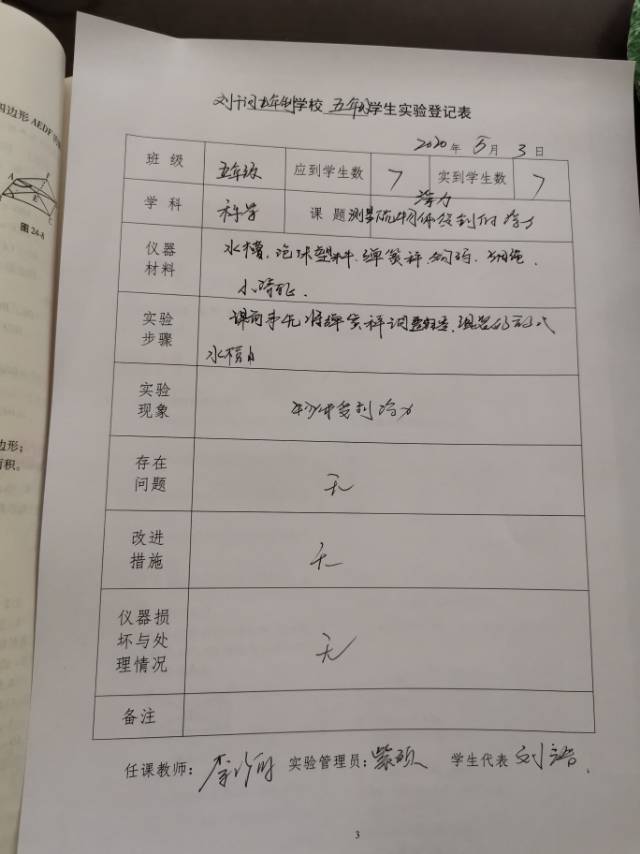 四边形 AEDF
图 24-4
边形；
面积。
学校 五年级 学生实验登记表
2020 年 5 月 3 日
班 级 五年级 应到学生数 7 实到学生数 7
浮力
学 科 科学 课 题 测量 物体受到的浮力
仪器
材料
水槽、泡沫塑料、弹簧秤、钩码、
实验
步骤
课前 先将弹簧秤调整
水槽
实验
现象
物体受到浮力
存在
问题
无
改进
措施
无
仪器损
坏与处
理情况
无
备注
任课教师： 李 实验管理员： 学生代表 刘
3